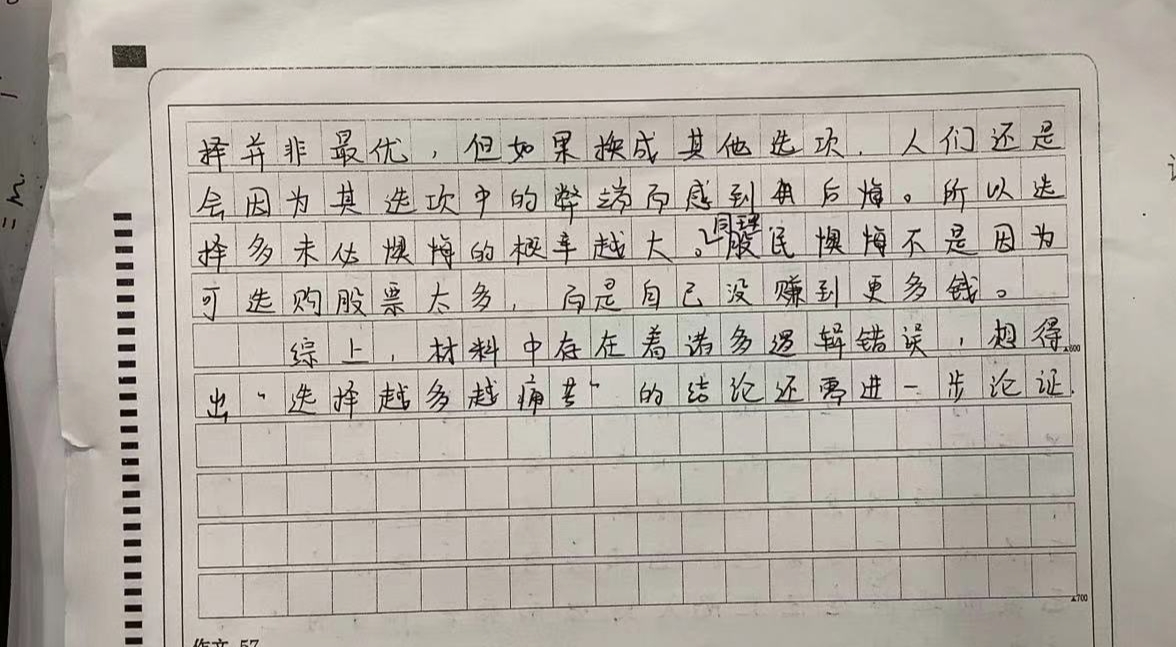 择并非最优，但如果换成其他选项，人们还是
会因为其选项中的弊端而感到再后悔。所以选
择多未必懊悔的概率越大。同理股民懊悔不是因为
可选购股票太多，而是自己没赚到更多钱。
综上，材料中存在着诸多逻辑错误，想得
▲600
出“选择越多越痛苦”的结论还需进一步论证.
▲700
作文 57